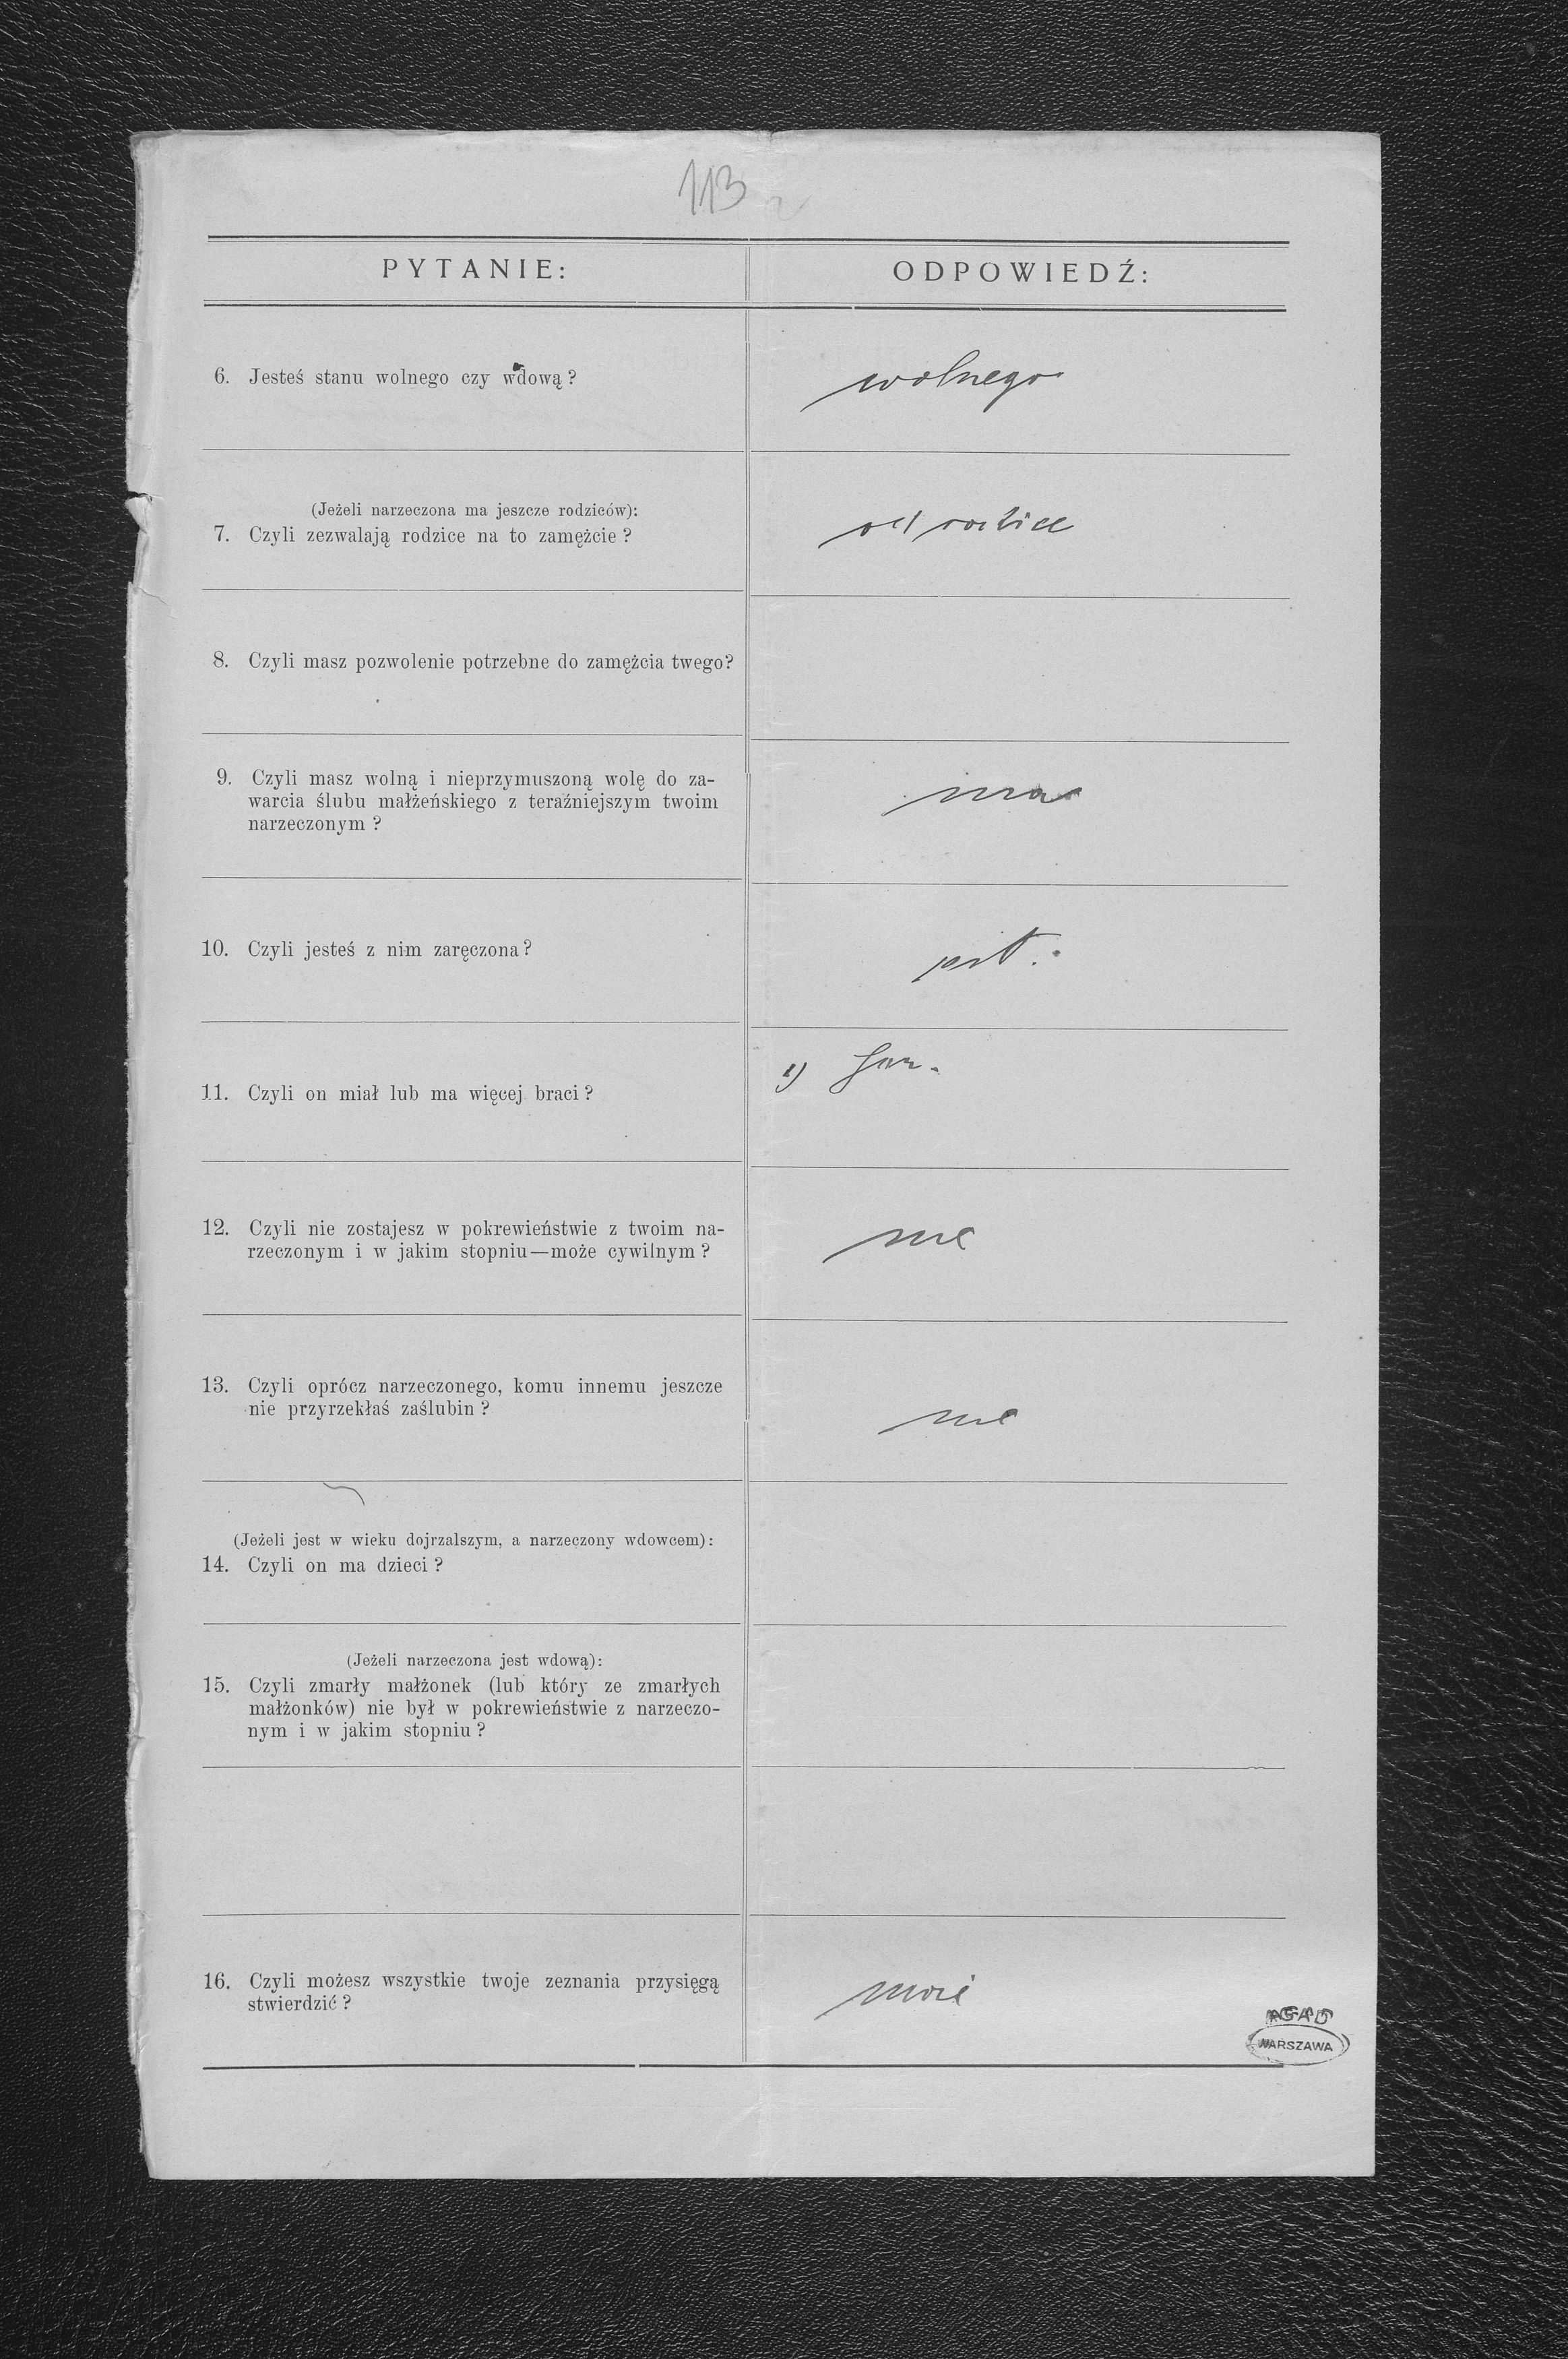 113
PYTANIE:
ODPOWIEDŹ:
6. Jesteś stanu wolnego czy wdową?
wolnego
(Jeżeli narzeczona ma jeszcze rodziców):
7. Czyli zezwalają rodzice na to zamężcie?
8. Czyli masz pozwolenie potrzebne do zamężcia twego?
9. Czyli masz wolną i nieprzymuszoną wolę do za-
warcia ślubu małżeńskiego z teraźniejszym twoim
narzeczonym?
ma
10. Czyli jesteś z nim zaręczona?
jest.
11. Czyli on miał lub ma więcej braci?
1)
12. Czyli nie zostajesz w pokrewieństwie z twoim na-
rzeczonym i w jakim stopniu—może cywilnym?
nie
13. Czyli oprócz narzeczonego, komu innemu jeszcze
nie przyrzekłaś zaślubin?
nie
(Jeżeli jest w wieku dojrzalszym, a narzeczony wdowcem):
14. Czyli on ma dzieci?
(Jeżeli narzeczona jest wdową):
15. Czyli zmarły małżonek (lub który ze zmarłych
małżonków) nie był w pokrewieństwie z narzeczo-
nym i w jakim stopniu?
16. Czyli możesz wszystkie twoje zeznania przysięgą
stwierdzić?
może
AGAD
WARSZAWA